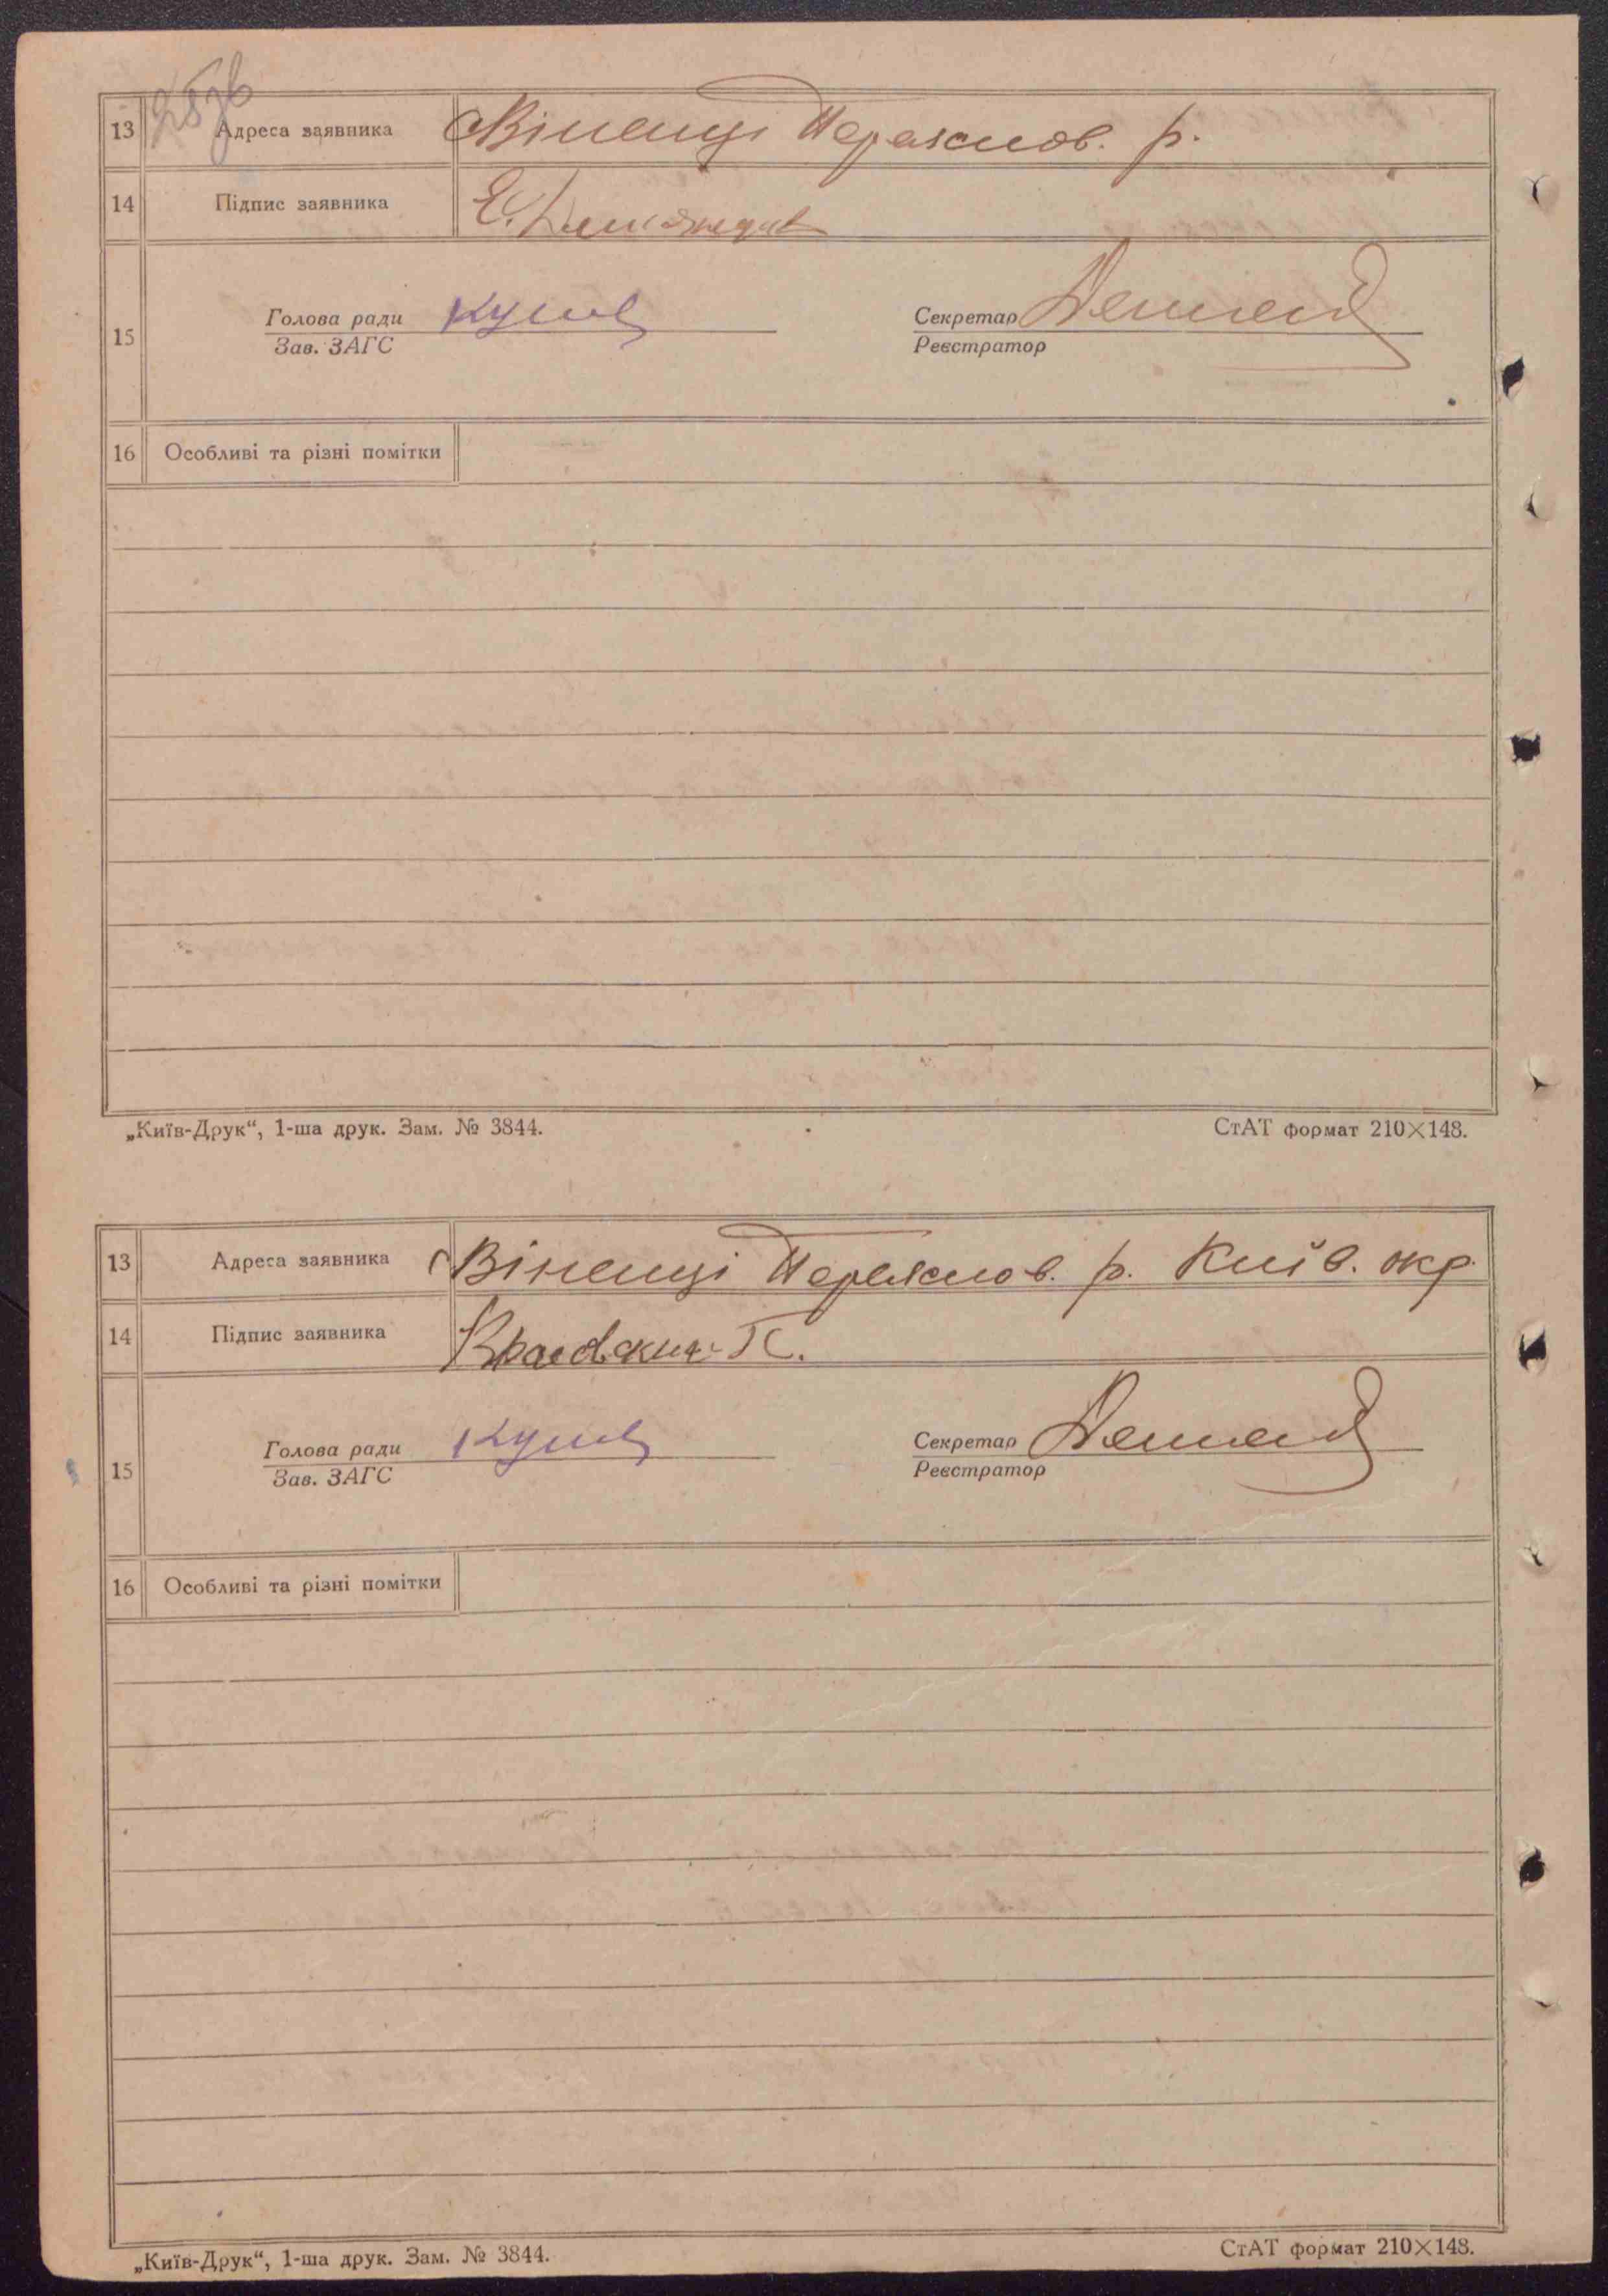 13 Адреса заявника с Віненці Переяслов. р.
14 Підпис заявника Е.
15 Голова ради Секретар
Зав. ЗАГС Реєстратор
16 Особливі та різні помітки
„Київ-Друк“, 1-ша друк. Зам. № 3844. СтАТ формат 210×148.
13 Адреса заявника с Віненці Переяслов. р. Київ. окр.
14 Підпис заявника
15 Голова ради Секретар
Зав. ЗАГС Реєстратор
16 Особливі та різні помітки
„Київ-Друк“, 1-ша друк. Зам. № 3844. СтАТ формат 210×148.